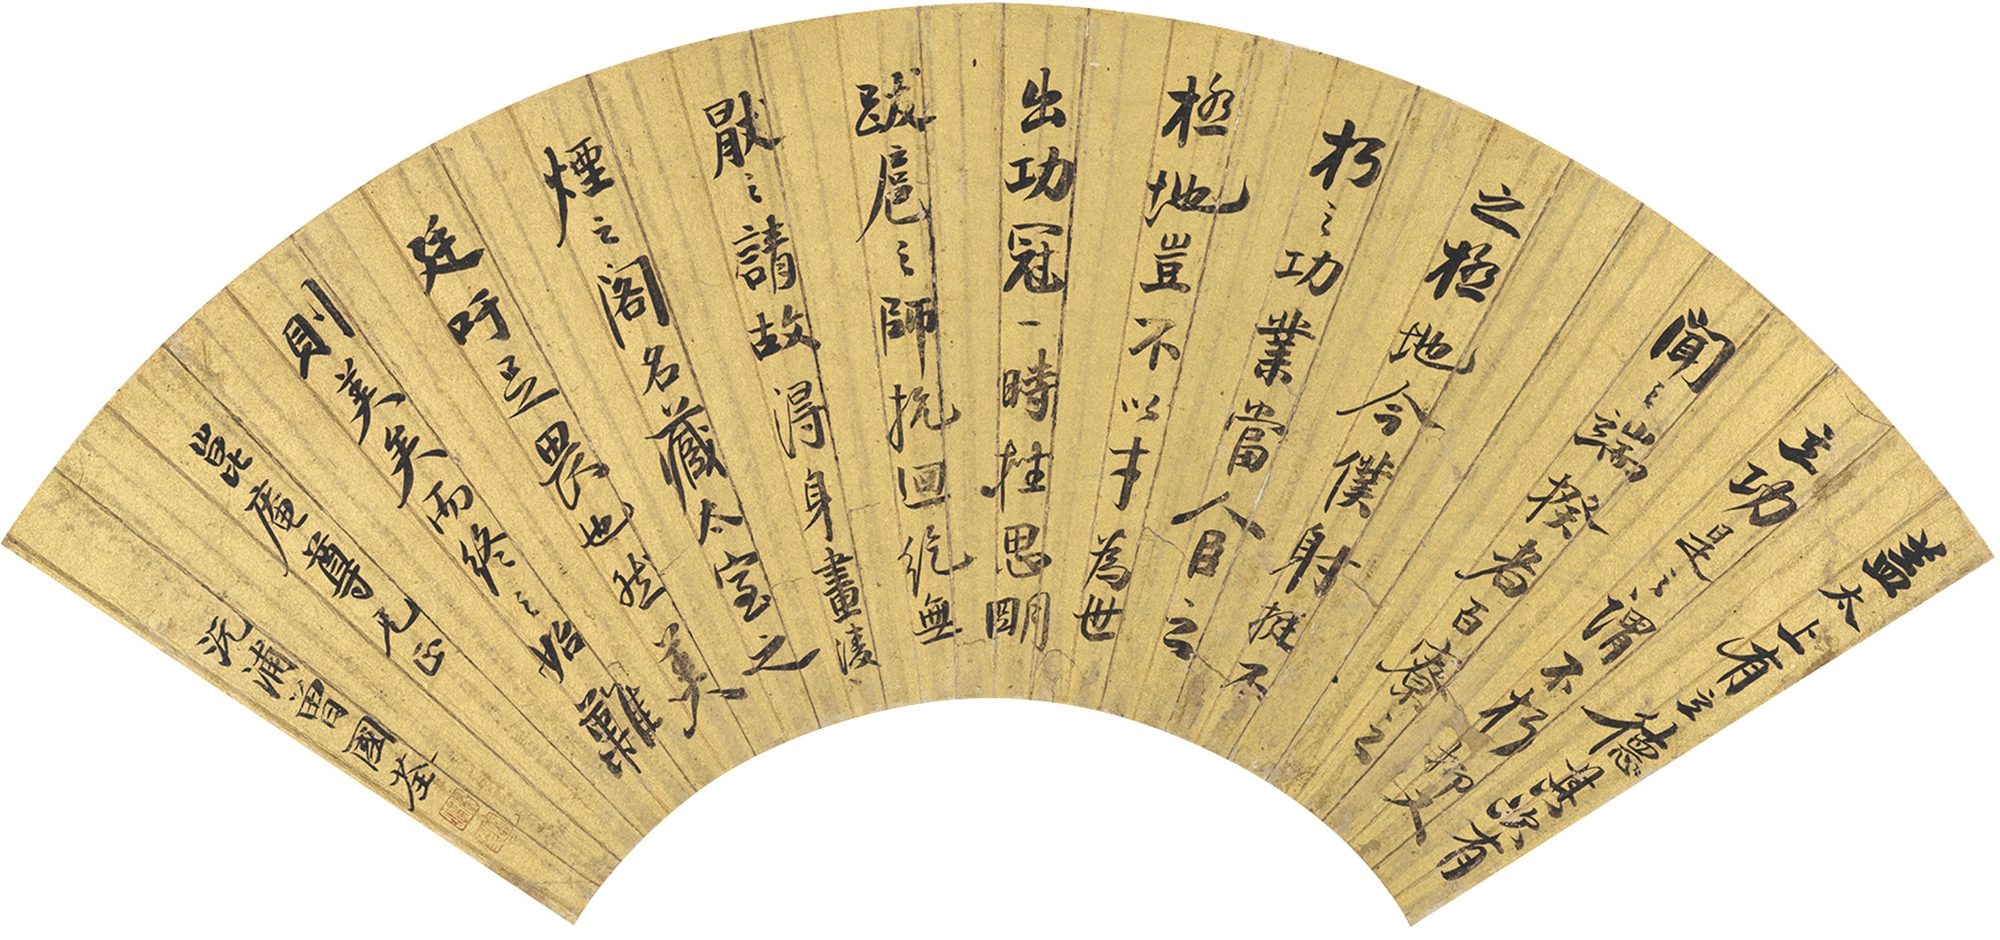 蓋太上有立德其次有
立功是之謂不朽抑又
聞之端揆者百寮之
之極地今僕射挺不
朽之功業當人臣之
極地豈不以才為世
出功冠一時挫思明
跋扈之師抗迴紇無
厭之請故得身畫淩
煙之閣名藏太室之
廷吁足畏也然美
則美矣而終之始難
崑庵尊兄正
沅浦曾國荃